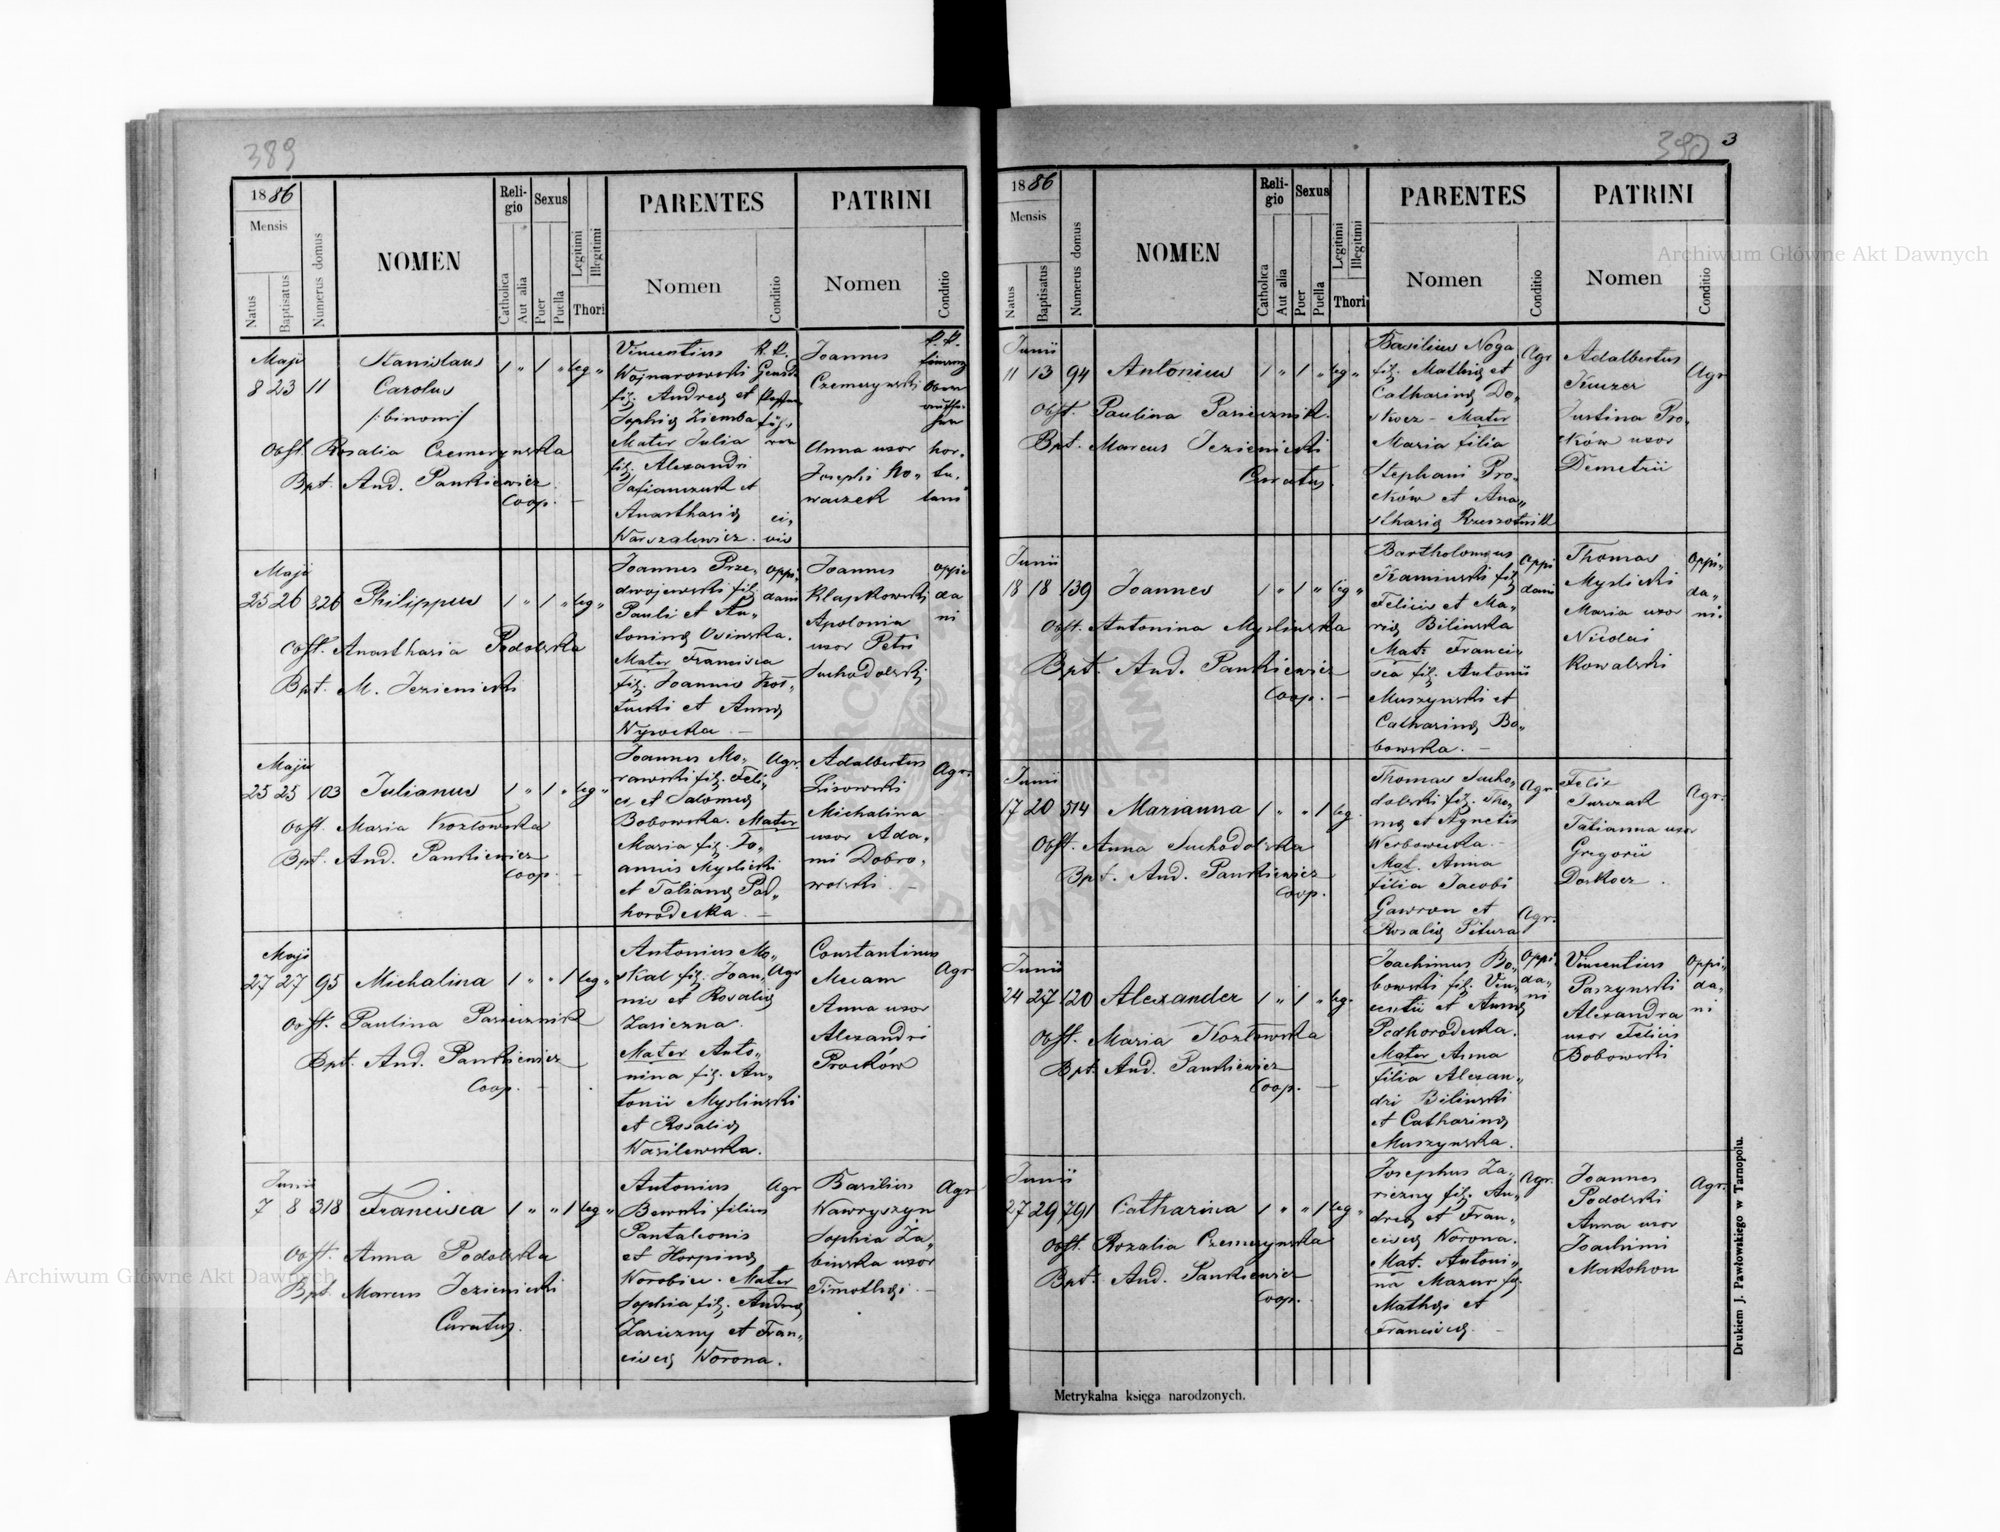 389
1886
Mensis
Natus
Baptisatus
Numerus domus
NOMEN
Religio
Catholica
Aut alia
Sexus
Puer
Puella
Legitimi
Illegitimi
Thori
PARENTES
Nomen
Conditio
PATRINI
Nomen
Conditio
Maji
8 23 11
Stanislaus
Carolus
/:binomi:/
1 „ 1 „ leg „
Obst. Rosalia Czemerynska
Bpt. And. Pankiewicz
Coop. —
Vincentius
Wojnarowski
fil. Andreę et
Sophię Ziemba
Mater Julia
fil. Alexandri
Anasthasię
Warszalewicz.
k. k.
ci„
vis
Joannes
Czemerynski
k. k.
Anna uxor
Josephi No„
waczek
hor„
tu„
lani
Maji
25 26 326
Philippus
1 „ 1 „ leg „
Obst. Anasthasia Podolska
Bpt. M. Jezienicki
Joannes Prze„
dwojewski fil.
Pauli et An„
toninę Osinska.
Mater Francisca
fil. Joannis
et Annę
Wysocka —
oppi„
dani
Joannes
Klapkowski
Apolonia
uxor Petri
Suchodolski
oppi
da
ni
Maji
25 25 103
Julianus
1 „ 1 „ leg „
Obst. Maria Kozłowska
Bpt. And. Pankiewicz
Coop. —
Joannes Mo„
rawski fil. Feli„
cis et Salomeę
Bobowska. Mater
Maria fil. Jo„
annis Myslicki
et Tatianę Pod„
horodecka —
Agr.
Adalbertus
Lisowski
Michalina
uxor Ada„
mi Dobro„
wolski —
Agr.
Maji
27 27 95
Michalina
1 „ „ 1 leg „
Obst. Paulina Pasiecznik
Bpt. And. Pankiewicz
Coop. —
Antonius Mo„
skal fil. Joan„
nis et Rosalię
Zasiezna.
Mater Anto„
nina fil. An„
tonii Myslinski
et Rosalię
Wasilewska.
Agr
Constantinus
Anna uxor
Alexandri
Proćków
Agr
Junii
7 8 318
Francisca
1 „ „ 1 leg „
Obst. Anna Podolska
Bpt. Marcus Jezienicki
Curatus.
Antonius
filius
Pantaleonis
et Horpinę
Worobiec. Mater
Sophia fil. Andreę
Zariezny et Fran„
ciscę Worona.
Agr
Basilius
Wawryszyn
Sophia Za„
binska uxor
Timothei —
Agr
390 3
1886
Mensis
Natus
Baptisatus
Numerus domus
NOMEN
Religio
Catholica
Aut alia
Sexus
Puer
Puella
Legitimi
Illegitimi
Thori
PARENTES
Nomen
Conditio
PATRINI
Nomen
Conditio
Junii
11 13 94
Antonius
1 „ 1 „ leg „
Obst. Paulina Pasiecznik.
Bpt. Marcus Jezienicki
Curatus.
Basilius Noga
fil. Mathię et
Catharinę Do„
skocz — Mater
Maria filia
Stephani Pro„
ćków et Ana„
sthasię
Agr
Adalbertus
Justina Pro„
ćków uxor
Demetrii
Agr
Junii
18 18 139
Joannes
1 „ 1 „ leg „
Obst. Antonina Myslinska
Bpt. And. Pankiewicz
Coop. —
Bartholomęus
Kaminski fil.
Felicis et Ma„
rię Bilinska
Mat. Francis„
ca fil. Antonii
Muszynski et
Catharinę Bo„
bowska. —
oppi
dani
Thomas
Myslicki
Maria uxor
Nicolai
Kowalski
oppi„
da„
ni
Junii
17 20 514
Marianna
1 „ „ 1 leg.
Obst. Anna Suchodolska
Bpt. And. Pankiewicz
Coop.
Thomas Sucho„
dolski fil. Tho„
mę et Agnetis
Werbowecka. —
Mat. Anna
filia Jacobi
Gawron et
Rosalię Pitura
Agr
Agr.
Felix
Jurczak
Tatianna uxor
Gregorii
Doskocz.
Agr.
Junii
24 27 120
Alexander
1 „ 1 „ leg.
Obst. Maria Kozłowska
Bpt. And. Pankiewicz
Coop. —
Joachimus Bo„
bowski fil. Vin„
centii et Annę
Podhorodecka.
Mater Anna
filia Alexan„
dri Bilinski
et Catharinę
Muszynska.
Oppi„
da„
ni
Vincentius
Paszynski
Alexandra
uxor Felicis
Bobowski
Oppi„
da„
ni
Junii
27 29 791
Catharina
1 „ „ 1 leg „
Obst. Rozalia Czemerynska
Bpt. And. Pankiewicz
Coop.
Josephus Za„
riezny fil. An„
dreę et Fran„
ciscę Worona.
Mat. Antoni„
na Mazur fil.
Mathęi et
Franciscę. —
Agr.
Joannes
Podolski
Anna uxor
Joachimi
Makohon
Agr.
Metrykalna księga narodzonych.
Drukiem J. Pawłowskiego w Tarnopolu.
Archiwum Główne Akt Dawnych
Archiwum Główne Akt Dawnych